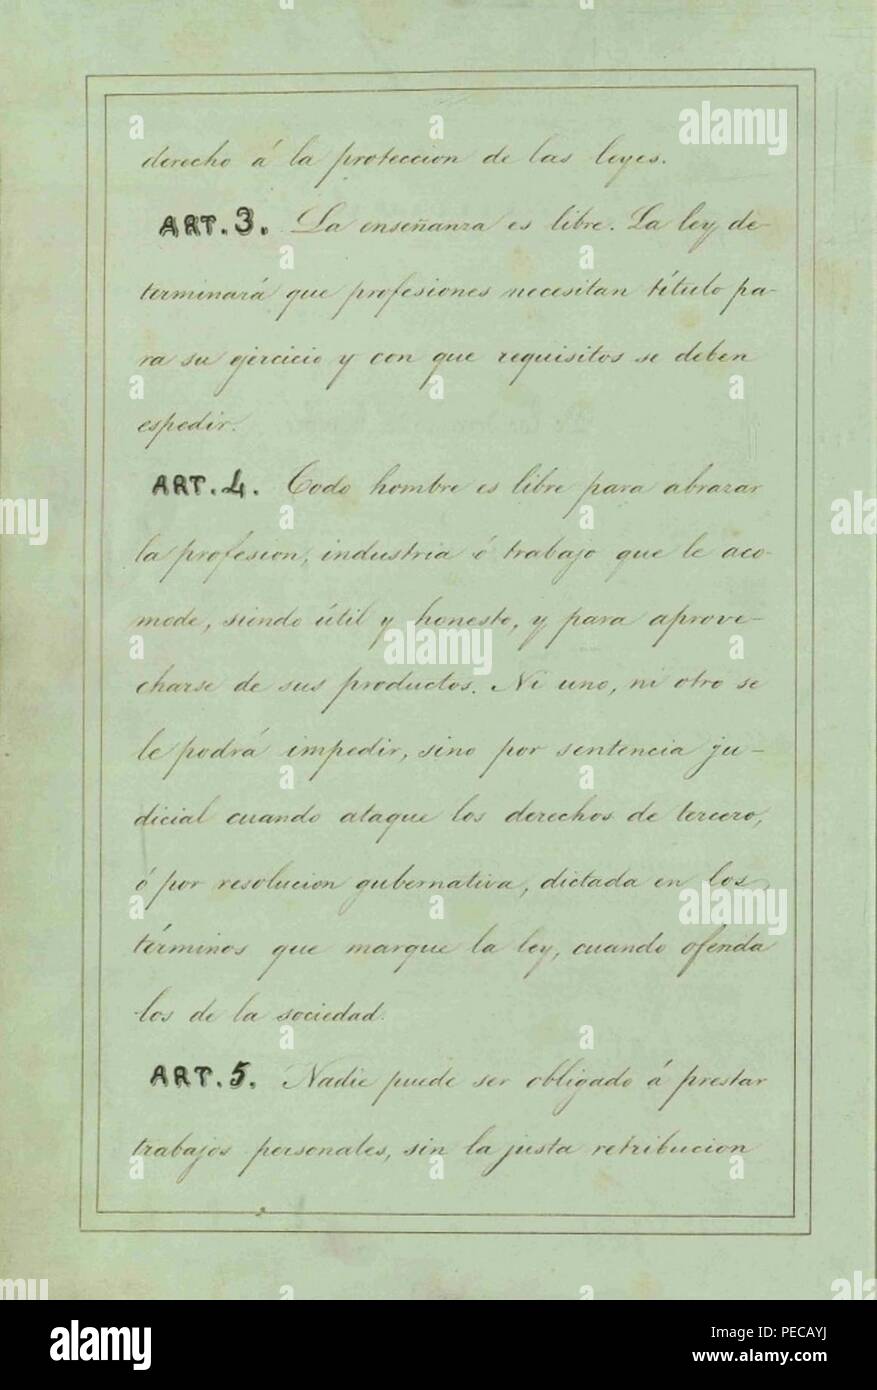 derecho á la proteccion de las leyes.
ART. 3. La enseñanza es libre. La ley de-
terminará que profesiones necesitan título pa-
ra su ejercicio y con que requisitos se deben
espedir.
ART. 4. Todo hombre es libre para abrazar
la profesion, industria ó trabajo que le aco-
mode, siendo útil y honesto, y para aprove-
charse de sus productos. Ni uno, ni otro se
le podrá impedir, sino por sentencia ju-
dicial cuando ataque los derechos de tercero,
ó por resolucion gubernativa, dictada en los
términos que marque la ley, cuando ofenda
los de la sociedad.
ART. 5. Nadie puede ser obligado á prestar
trabajos personales, sin la justa retribucion
alamy
Image ID: PECAYJ
www.alamy.com